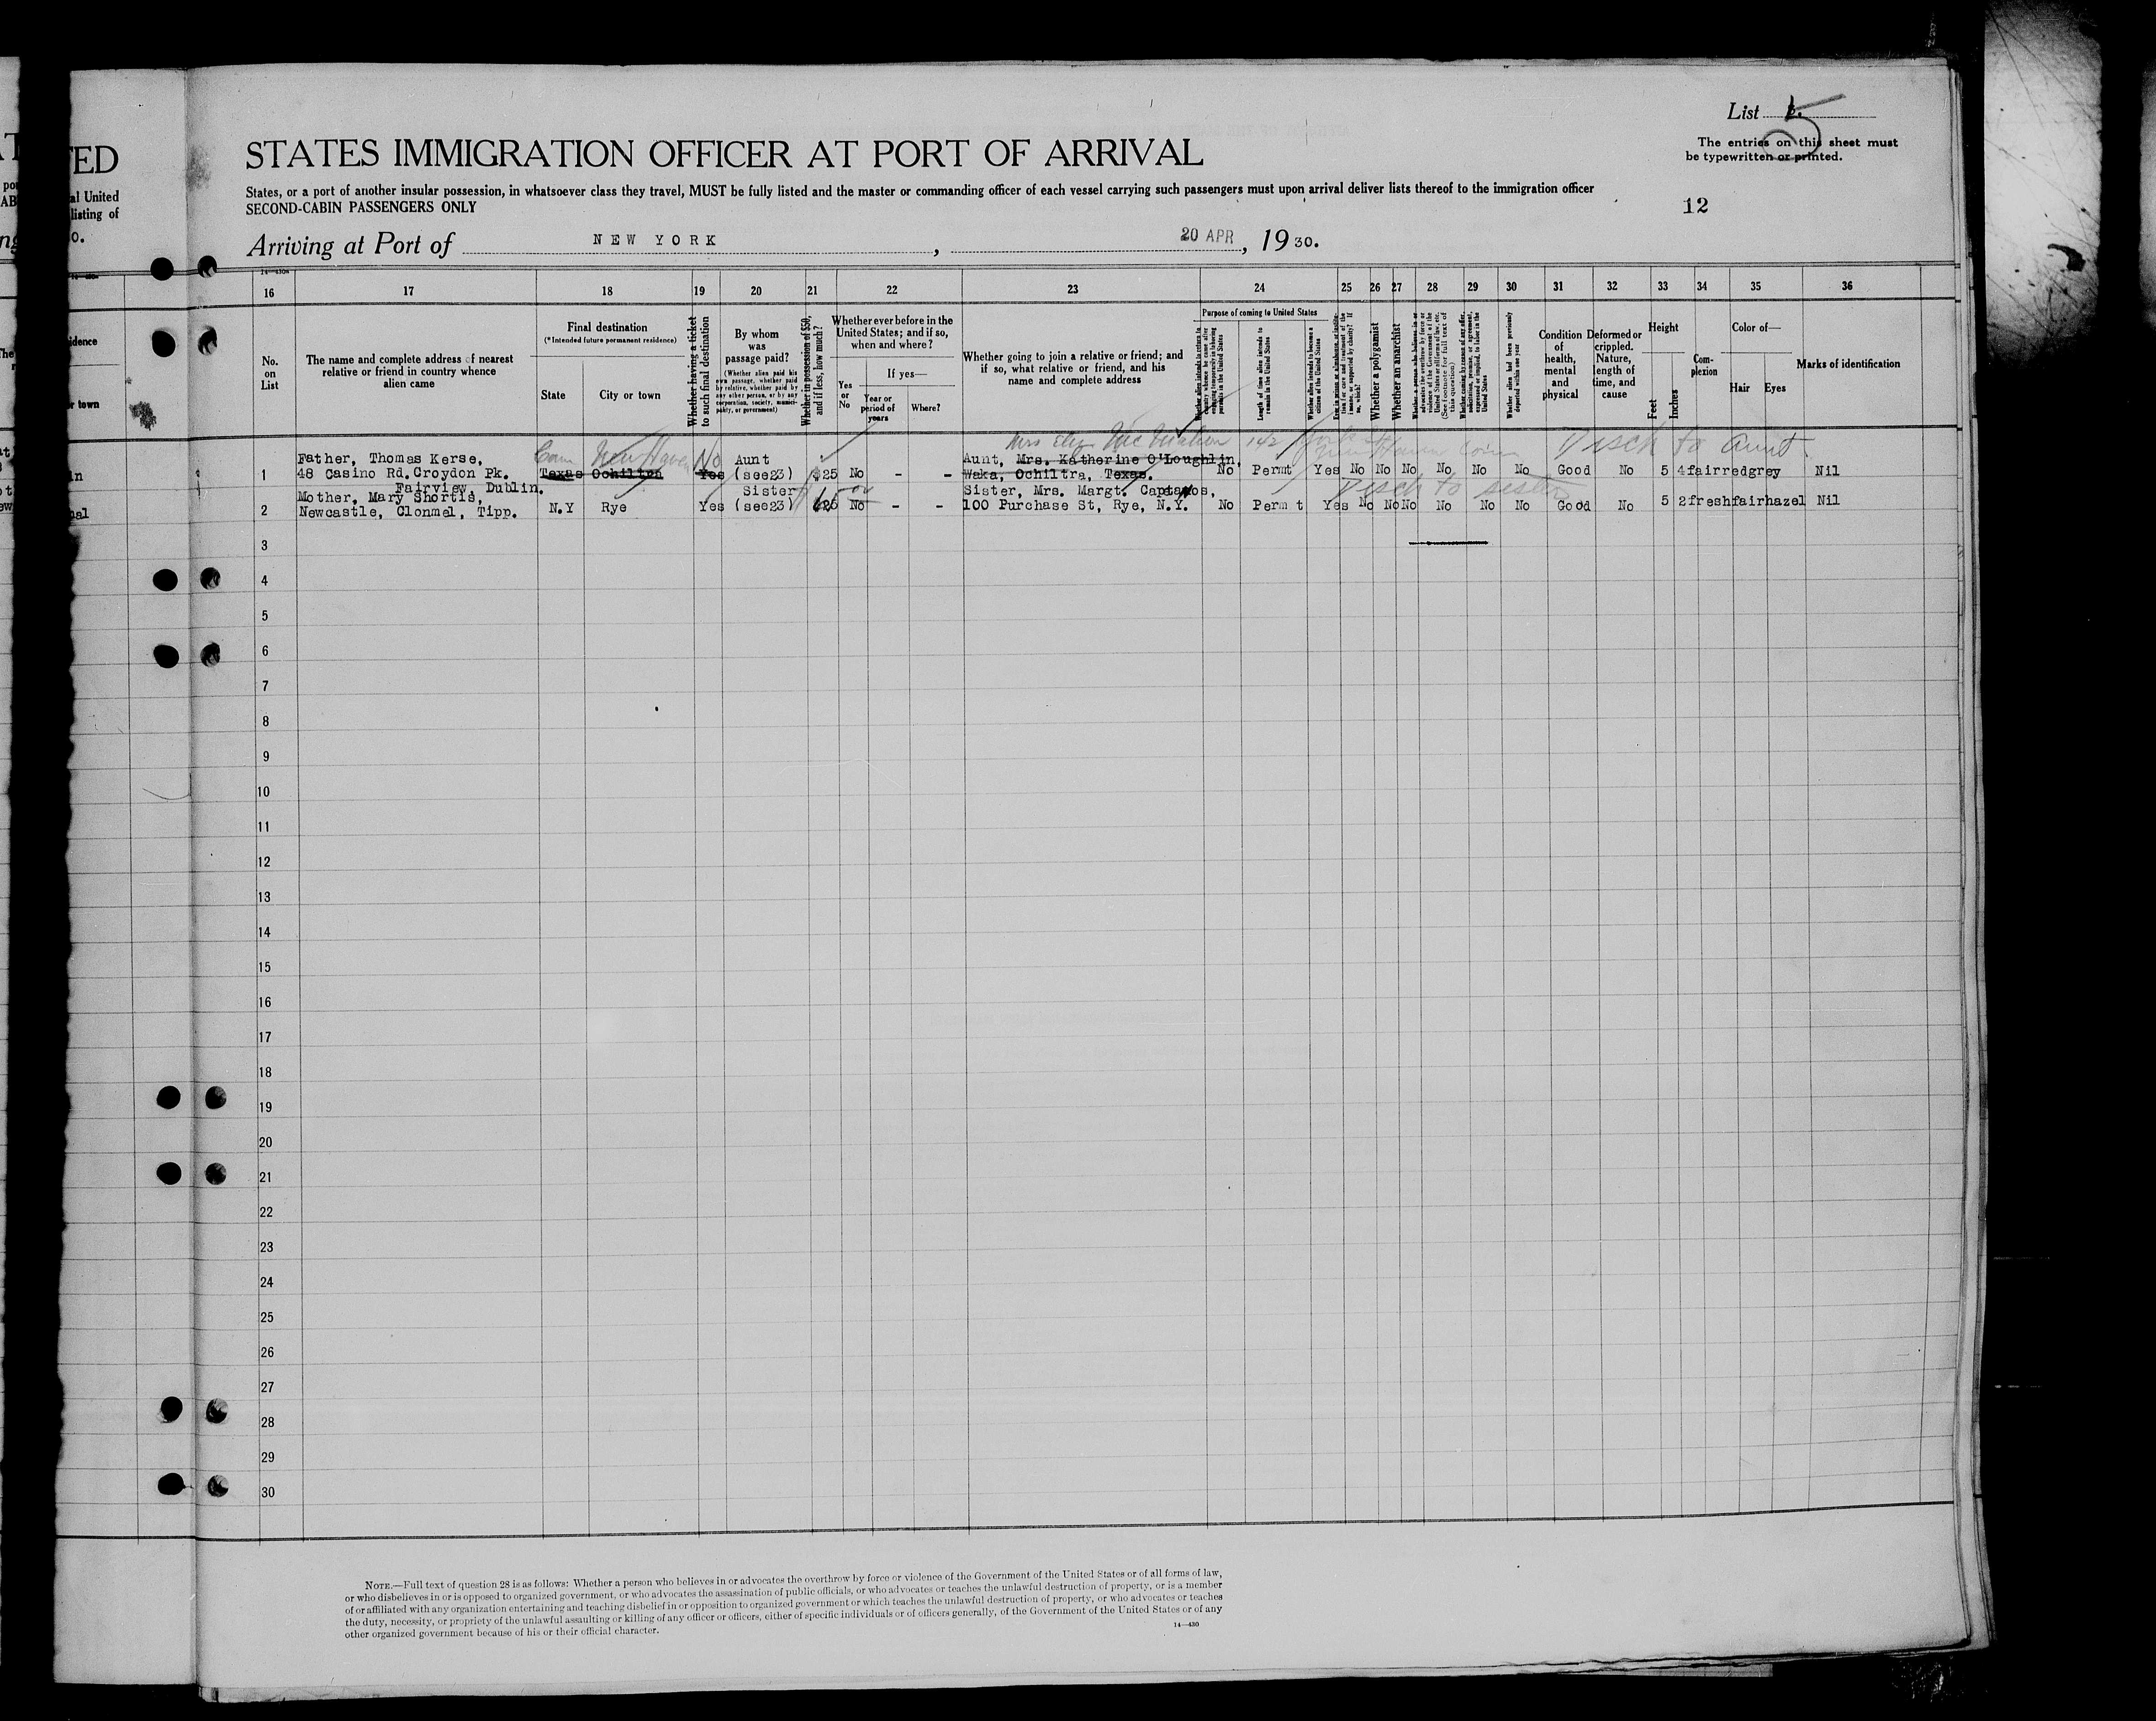 List 5
The entries on this sheet must
be typewritten or printed.
STATES IMMIGRATION OFFICER AT PORT OF ARRIVAL
States, or a port of another insular possession, in whatsoever class they travel, MUST be fully listed and the master or commanding officer of each vessel carrying such passengers must upon arrival deliver lists thereof to the immigration officer
SECOND-CABIN PASSENGERS ONLY
12
Arriving at Port of NEW YORK, 20 APR, 1930.
TED
al United
listing of
16 17 18 19 20 21 22 23 24 25 26 27 28 29 30 31 32 33 34 35 36
No. on List
The name and complete address of nearest relative or friend in country whence alien came
Final destination
(*Intended future permanent residence)
State
City or town
Whether having a ticket to such final destination
By whom was passage paid?
(Whether alien paid his own passage, whether paid by relative, whether paid by any other person, or by any corporation, society, municipality, or government)
Whether in possession of $50, and if less, how much?
Whether ever before in the United States; and if so, when and where?
Yes or No
If yes—
Year or period of years
Where?
Whether going to join a relative or friend; and if so, what relative or friend, and his name and complete address
Purpose of coming to United States
Length of time alien intends to remain in the United States
Whether alien intends to become a citizen of the United States
Whether a polygamist
Whether an anarchist
(See footnote for full text of this question)
Whether alien had been previously deported within one year
Condition of health, mental and physical
Deformed or crippled. Nature, length of time, and cause
Height
Feet
Inches
Complexion
Color of—
Hair
Eyes
Marks of identification
Conn New Haven No Mrs Eliz. McMahon 142 York St New Haven Conn Disch to Aunt
Father, Thomas Kerse, Aunt Aunt, Mrs. Katherine O'Loughlin,
1 48 Casino Rd, Croydon Pk. Texas Ochiltra Yes (see23) $25 No - - Waka, Ochiltra, Texas. No Permt Yes No No No No No No Good No 5 4 fair red grey Nil
Fairview, Dublin.
Disch to sister
Mother, Mary Shortis, Sister Sister, Mrs. Margt. Captanos,
2 Newcastle, Clonmel, Tipp. N.Y Rye Yes (see23) $25 No - - 100 Purchase St, Rye, N.Y. No Perm t Yes No No No No No No Good No 5 2 fresh fair hazel Nil
3
4
5
6
7
8
9
10
11
12
13
14
15
16
17
18
19
20
21
22
23
24
25
26
27
28
29
30
NOTE.—Full text of question 28 is as follows: Whether a person who believes in or advocates the overthrow by force or violence of the Government of the United States or of all forms of law,
or who disbelieves in or is opposed to organized government, or who advocates the assassination of public officials, or who advocates or teaches the unlawful destruction of property, or is a member
of or affiliated with any organization entertaining and teaching disbelief in or opposition to organized government or which teaches the unlawful destruction of property, or who advocates or teaches
the duty, necessity, or propriety of the unlawful assaulting or killing of any officer or officers, either of specific individuals or of officers generally, of the Government of the United States or of any
other organized government because of his or their official character.
14—430